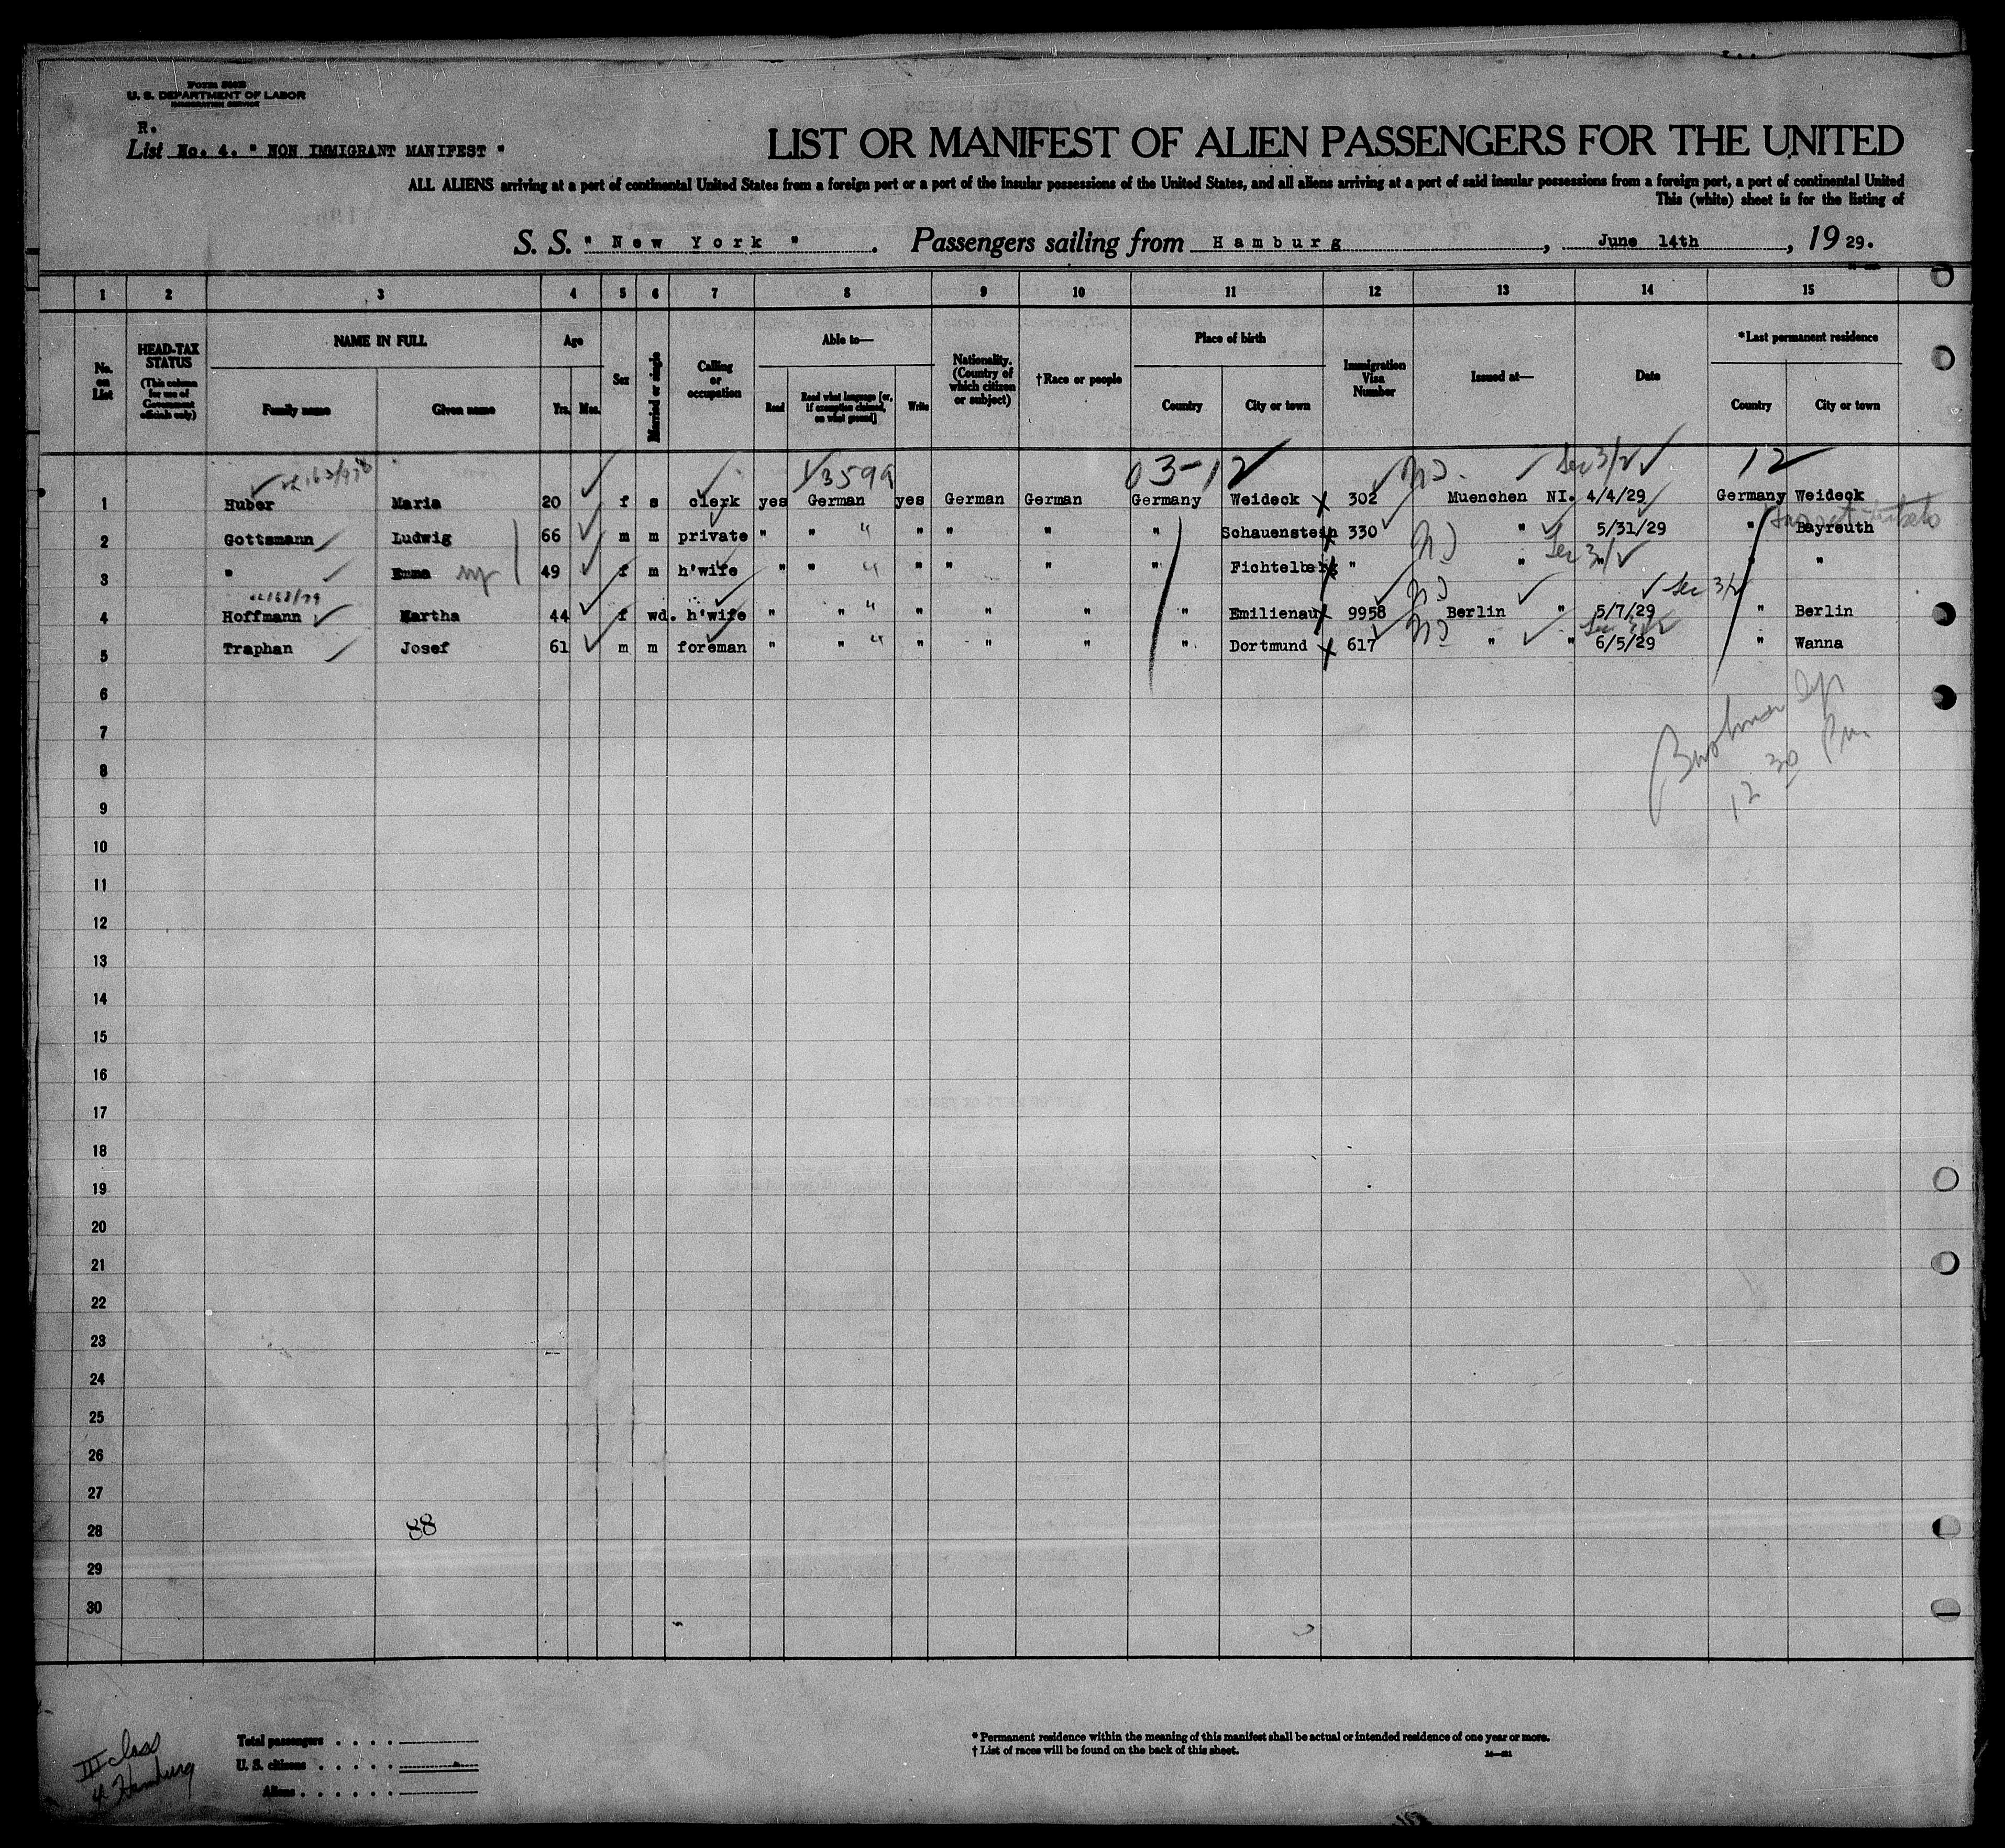 Form 500B
U. S. DEPARTMENT OF LABOR
IMMIGRATION SERVICE
R.
List No. 4. " NON IMMIGRANT MANIFEST "
LIST OR MANIFEST OF ALIEN PASSENGERS FOR THE UNITED
ALL ALIENS arriving at a port of continental United States from a foreign port or a port of the insular possessions of the United States, and all aliens arriving at a port of said insular possessions from a foreign port, a port of continental United
This (white) sheet is for the listing of
S. S. " New York ". Passengers sailing from Hamburg, June 14th, 19 29.
1 2 3 4 5 6 7 8 9 10 11 12 13 14 15
No. on List
HEAD-TAX STATUS (This column for use of Government officials only)
NAME IN FULL
Family name
Given name
Age
Yrs. Mos.
Sex
Married or single
Calling or occupation
Able to—
Read
Read what language [or, if exemption claimed, on what ground]
Write
Nationality. (Country of which citizen or subject)
†Race or people
Place of birth
Country
City or town
Immigration Visa Number
Issued at—
Date
*Last permanent residence
Country
City or town
3599 03-12 Sec 3/2 12
1 Huber Maria 20 f s clerk yes German yes German German Germany Weideck 302 Muenchen NI. 4/4/29 Germany Weideck
2 Gottsmann Ludwig 66 m m private " " " " " " " Schauenstein 330 " 5/31/29 " Bayreuth
Sec 3/2
3 " Emma 49 f m h'wife " " " " " " " Fichtelberg " " " " "
4 Hoffmann Martha 44 f wd. h'wife " " " " " " " Emilienau 9958 Berlin " 5/7/29 " Berlin
5 Traphan Josef 61 m m foreman " " " " " " " Dortmund 617 " " 6/5/29 " Wanna
6
7
8
12 30 Pm
9
10
11
12
13
14
15
16
17
18
19
20
21
22
23
24
25
26
27
28 88
29
30
III class
Hamburg
Total passengers . . . .
U. S. citizens . . . . .
Aliens . . . . . .
* Permanent residence within the meaning of this manifest shall be actual or intended residence of one year or more.
† List of races will be found on the back of this sheet.